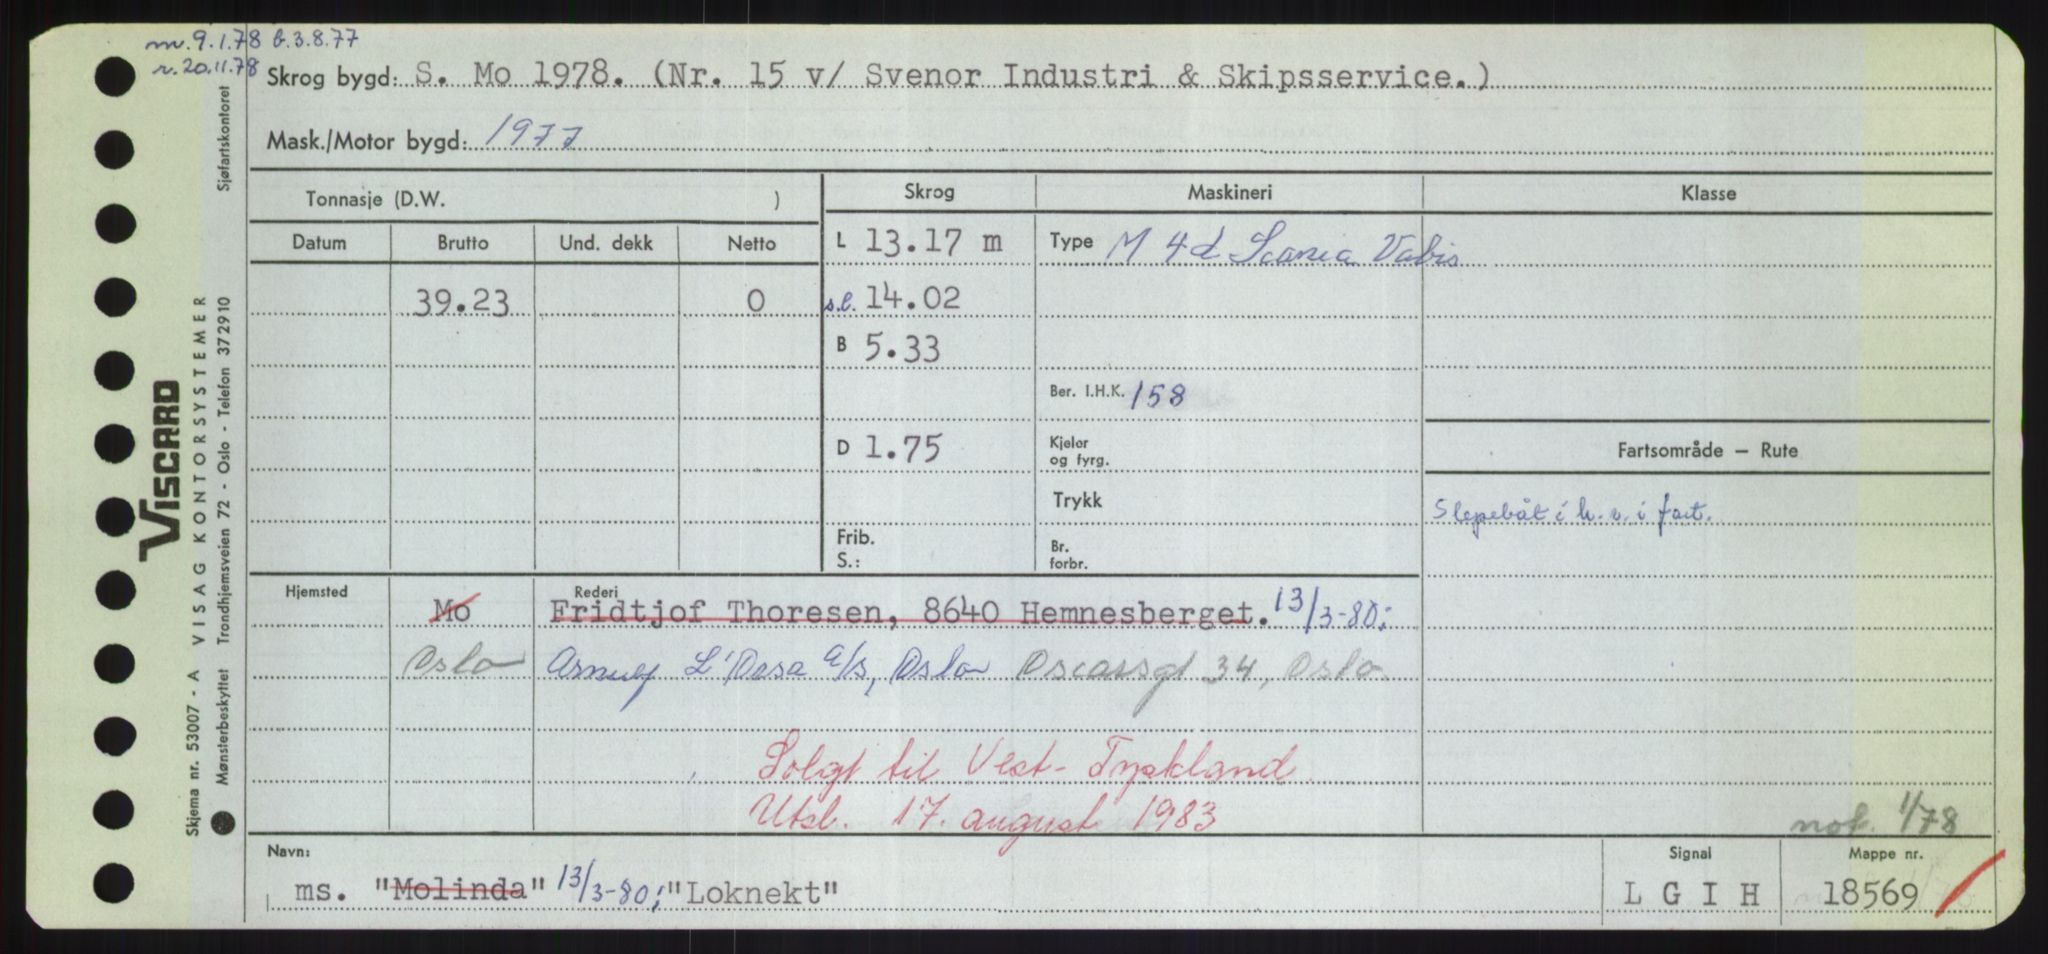 m. 9.1.78 b.3.8.77
r. 20.11.78
Skrog bygd: S. Mo 1978. (Nr. 15 v/ Svenor Industri & Skipsservice.)
Mask./Motor bygd: 1977
Tonnasje (D.W. )
Skrog Maskineri Klasse
Datum Brutto Und. dekk Netto
L 13.17 m Type M 4d Scania Vabis
39.23 0 s.l. 14.02
B 5.33
Ber. I.H.K. 158
D 1.75 Kjeler og fyrg.
Fartsområde — Rute
Trykk
Slepebåt i h.v. i fart.
Frib.
S.:
Br. forbr.
Hjemsted Rederi
Mo Fridtjof Thoresen, 8640 Hemnesberget. 13/3-80;
Oslo Arnulf L'Orsa a/s, Oslo Oscarsgt 34, Oslo
Solgt til Vest-Tyskland
Utsl. 17. august 1983
not. 1/78
Navn: Signal Mappe nr.
ms. "Molinda" 13/3-80; "Loknekt" L G I H 18569
VISCARD
VISAG KONTORSYSTEMER
Skjema nr. 53007 - A
Sjøfartskontoret
Trondhjemsveien 72 - Oslo - Telefon 372910
Mønsterbeskyttet